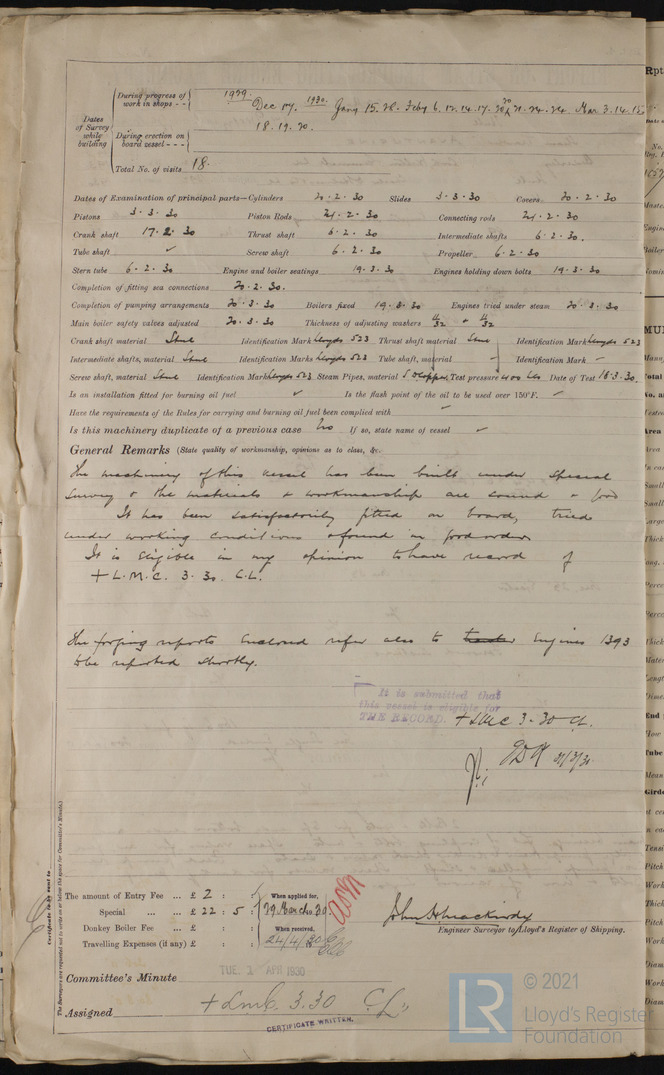 During progress of work in shops - - 1929. Dec 17. 1930. Jany 15. 28. Feby 6. 12. 14. 17. 20. 21. 24. 24 Mar 3. 14. 15.
18. 19. 20.
Dates of Survey while building
During erection on board vessel - - -
Total No. of visits 18.
Dates of Examination of principal parts—Cylinders 20 . 2 . 30 Slides 3 . 3 . 30 Covers 20 . 2 . 30
Pistons 3 . 3 . 30 Piston Rods 24 . 2 . 30 Connecting rods 24 . 2 . 30
Crank shaft 17 . 2 . 30 Thrust shaft 6 . 2 . 30 Intermediate shafts 6 . 2 . 30.
Tube shaft ✓ Screw shaft 6 . 2 . 30 Propeller 6 . 2 . 30
Stern tube 6 . 2 . 30 Engine and boiler seatings 19 . 3 . 30 Engines holding down bolts 19 . 3 . 30
Completion of fitting sea connections 20 . 2 . 30.
Completion of pumping arrangements 20 . 3 . 30 Boilers fixed 19 . 3 . 30 Engines tried under steam 20 . 3 . 30
Main boiler safety valves adjusted 20 . 3 . 30 Thickness of adjusting washers
Crank shaft material Steel Identification Mark Lloyds 523 Thrust shaft material Steel Identification Mark Lloyds 523
Intermediate shafts, material Steel Identification Marks Lloyds 523 Tube shaft, material Identification Mark –
Screw shaft, material Steel Identification Mark Lloyds 523 Steam Pipes, material S D Copper Test pressure 400 lbs Date of Test 18.3.30.
Is an installation fitted for burning oil fuel ✓ Is the flash point of the oil to be used over 150°F. ✓
Have the requirements of the Rules for carrying and burning oil fuel been complied with ✓
Is this machinery duplicate of a previous case No If so, state name of vessel ✓
General Remarks (State quality of workmanship, opinions as to class, &c.
The machinery of this vessel has been built under Special
Survey & the materials & workmanship are sound & good
It has been satisfactorily fitted on board, tried
under working conditions & found in good order.
It is eligible in my opinion to have record of
+ L.M.C. 3.30. C.L.
The forging reports enclosed refer also to Engines 1393
to be reported shortly.
It is submitted that
this vessel is eligible for
THE RECORD. + LMC 3.30 CL.
The amount of Entry Fee ... £ 2 : : When applied for,
Special ... ... £ 22 : 5 : 29 March 1930.
Donkey Boiler Fee ... £ : : When received,
Travelling Expenses (if any) £ : : 24/4/30
Engineer Surveyor to Lloyd's Register of Shipping.
Committee's Minute TUE. 1 APR 1930
Assigned + LMC 3.30 CL
CERTIFICATE WRITTEN.
Certificate to be sent to
The Surveyors are requested not to write on or below the space for Committee's Minute.
LR
© 2021
Lloyd's Register
Foundation